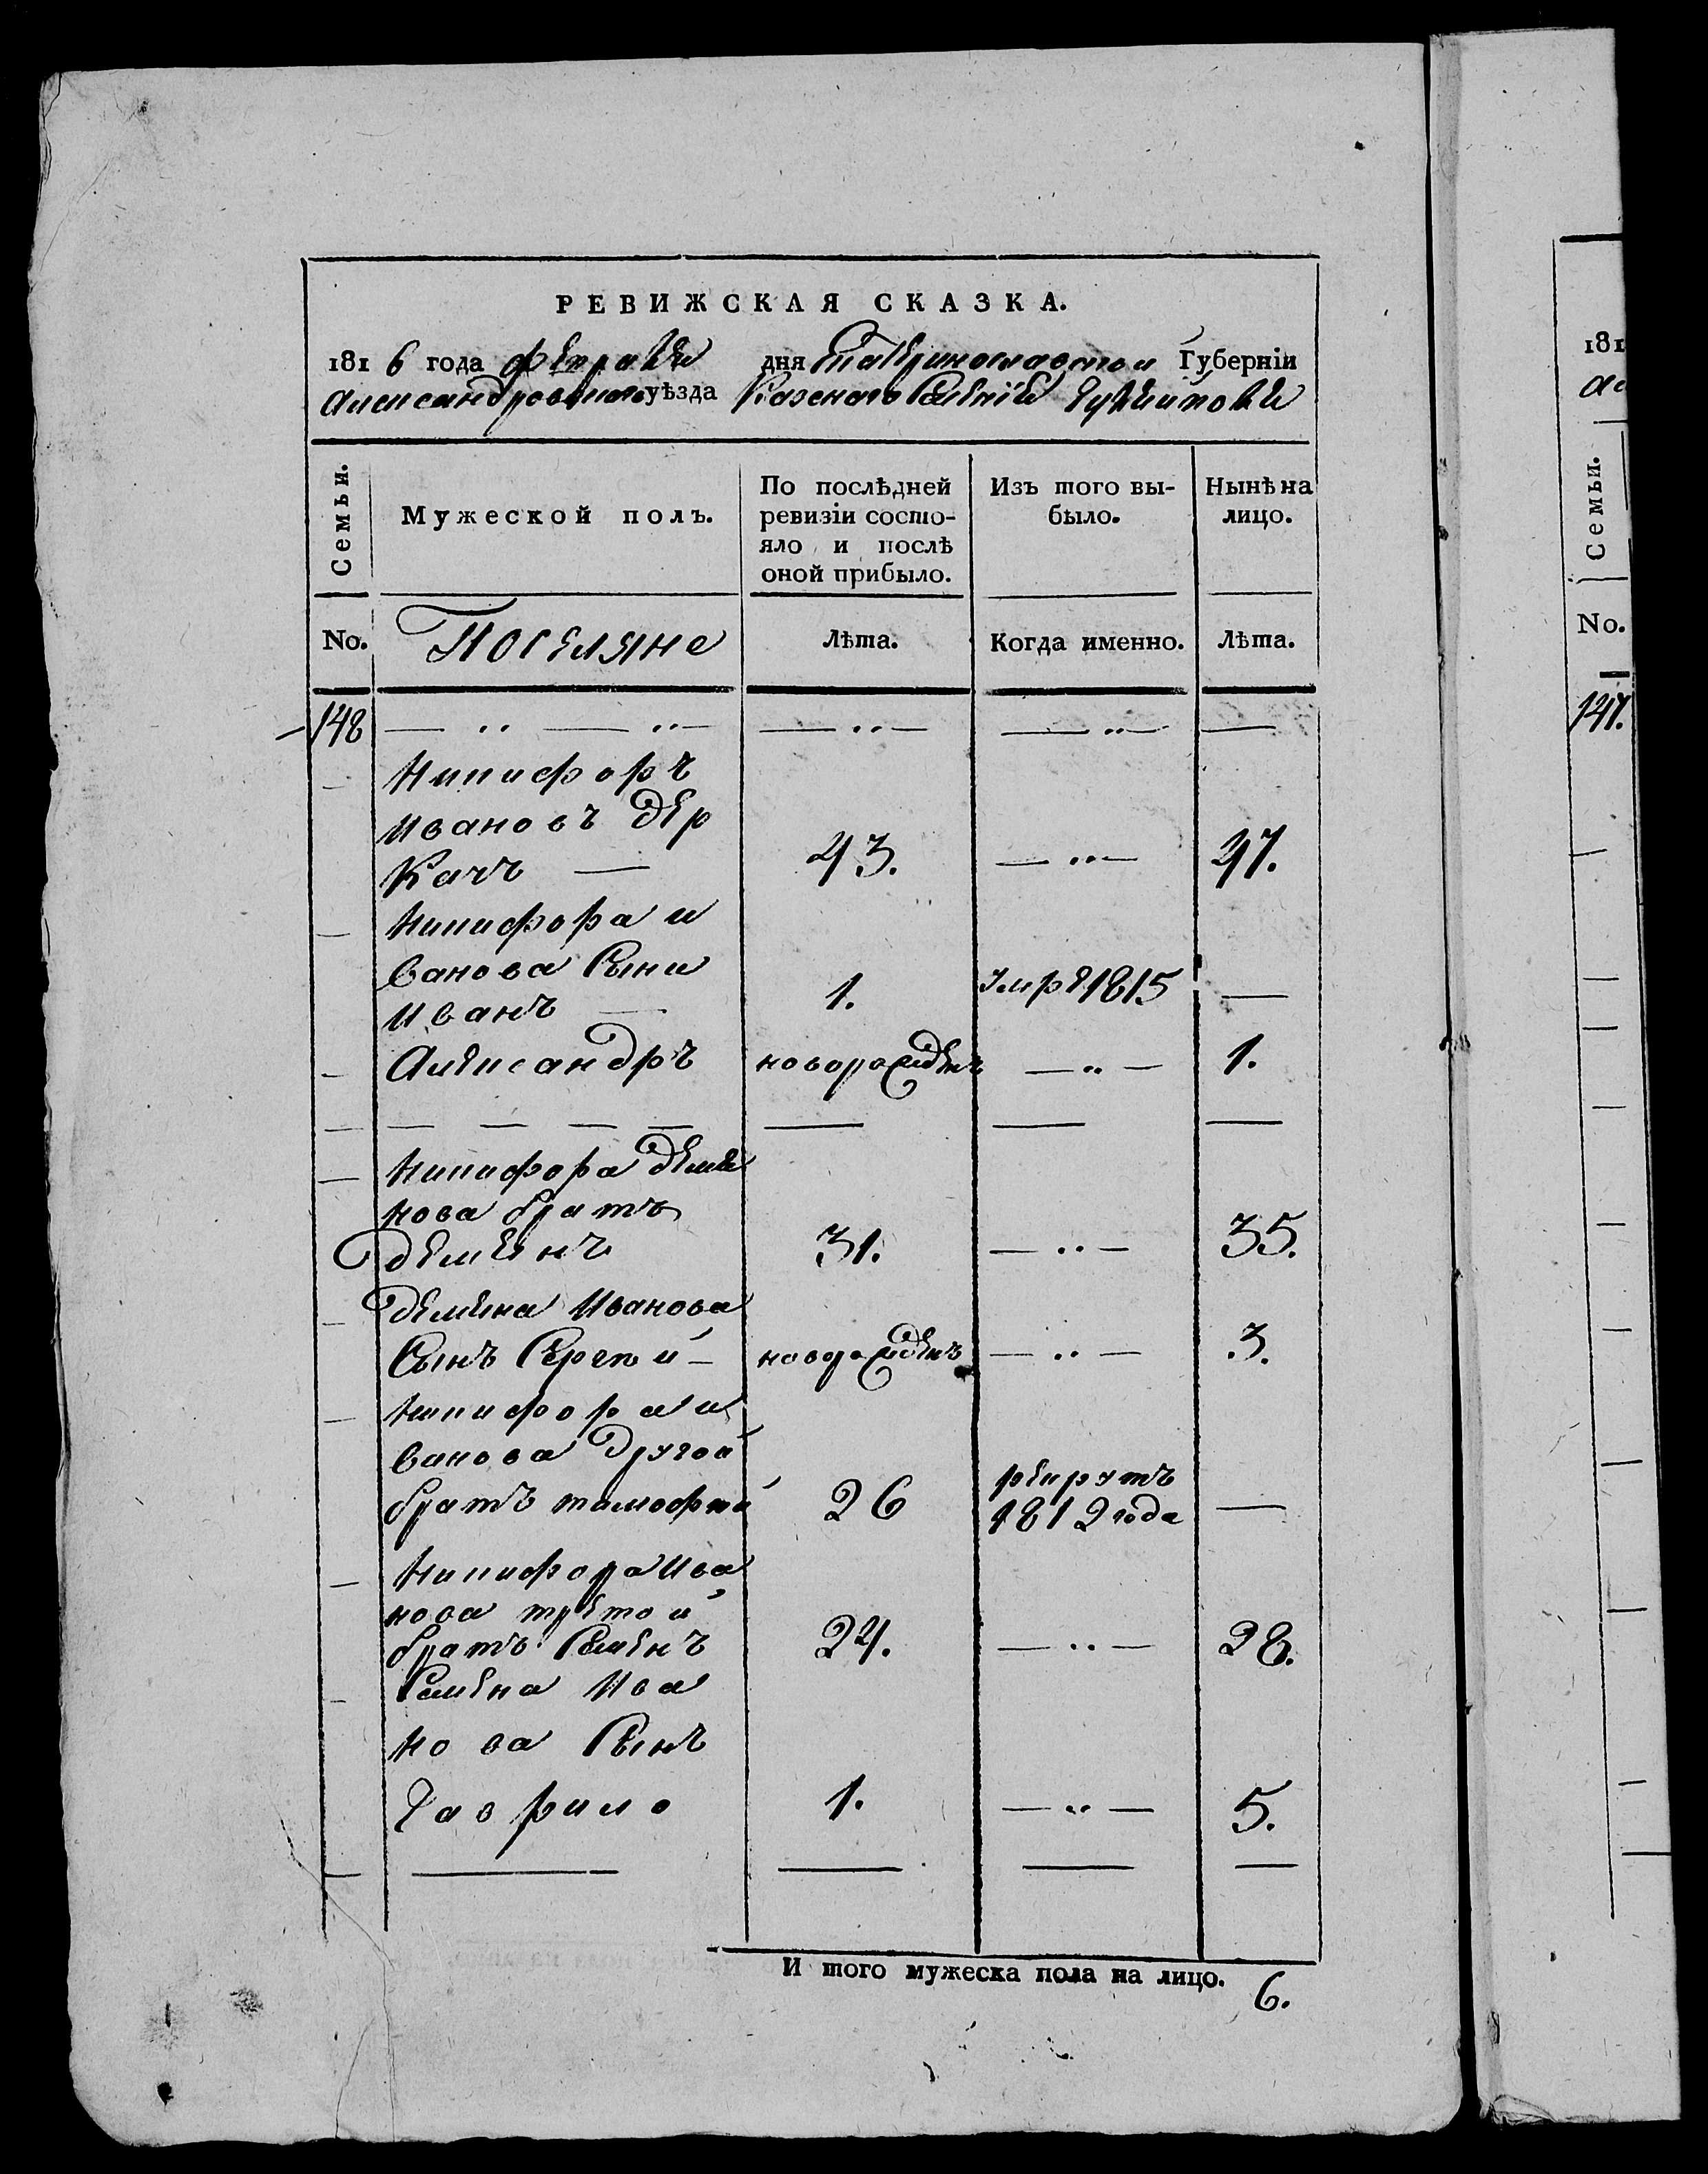 РЕВИЖСКАЯ СКАЗКА.
1816 года февраля дня Екатеринославской Губерніи
Александровскаго уѣзда Казеннаго Селенія Гуляйполя
Семьи.
Мужеской полъ.
По послѣдней ревизіи состо-
яло и послѣ
оной прибыло.
Изъ того вы-
было.
Нынѣ на
лицо.
No.
Поселяне
Лѣта.
Когда именно.
Лѣта.
148
Никифоръ
Ивановъ Дер
качь 43. 47.
Никифора И
ванова сыни
Иванъ 1. умре 1815
Александръ новорожденъ 1.
Никифора
нова братъ
Демянъ 31. 35.
Демяна Иванова
Сынъ Сергей новорожденъ 3.
Никифора И
ванова другой
братъ Тимофей 26 рекрутъ
1812 года
Никифора Ива
нова третой
братъ Семенъ 24. 28.
Семена Ива
нова Сынъ
Гаврило 1. 5.
И того мужеска пола на лицо. 6.
181
Семьи.
No.
147.